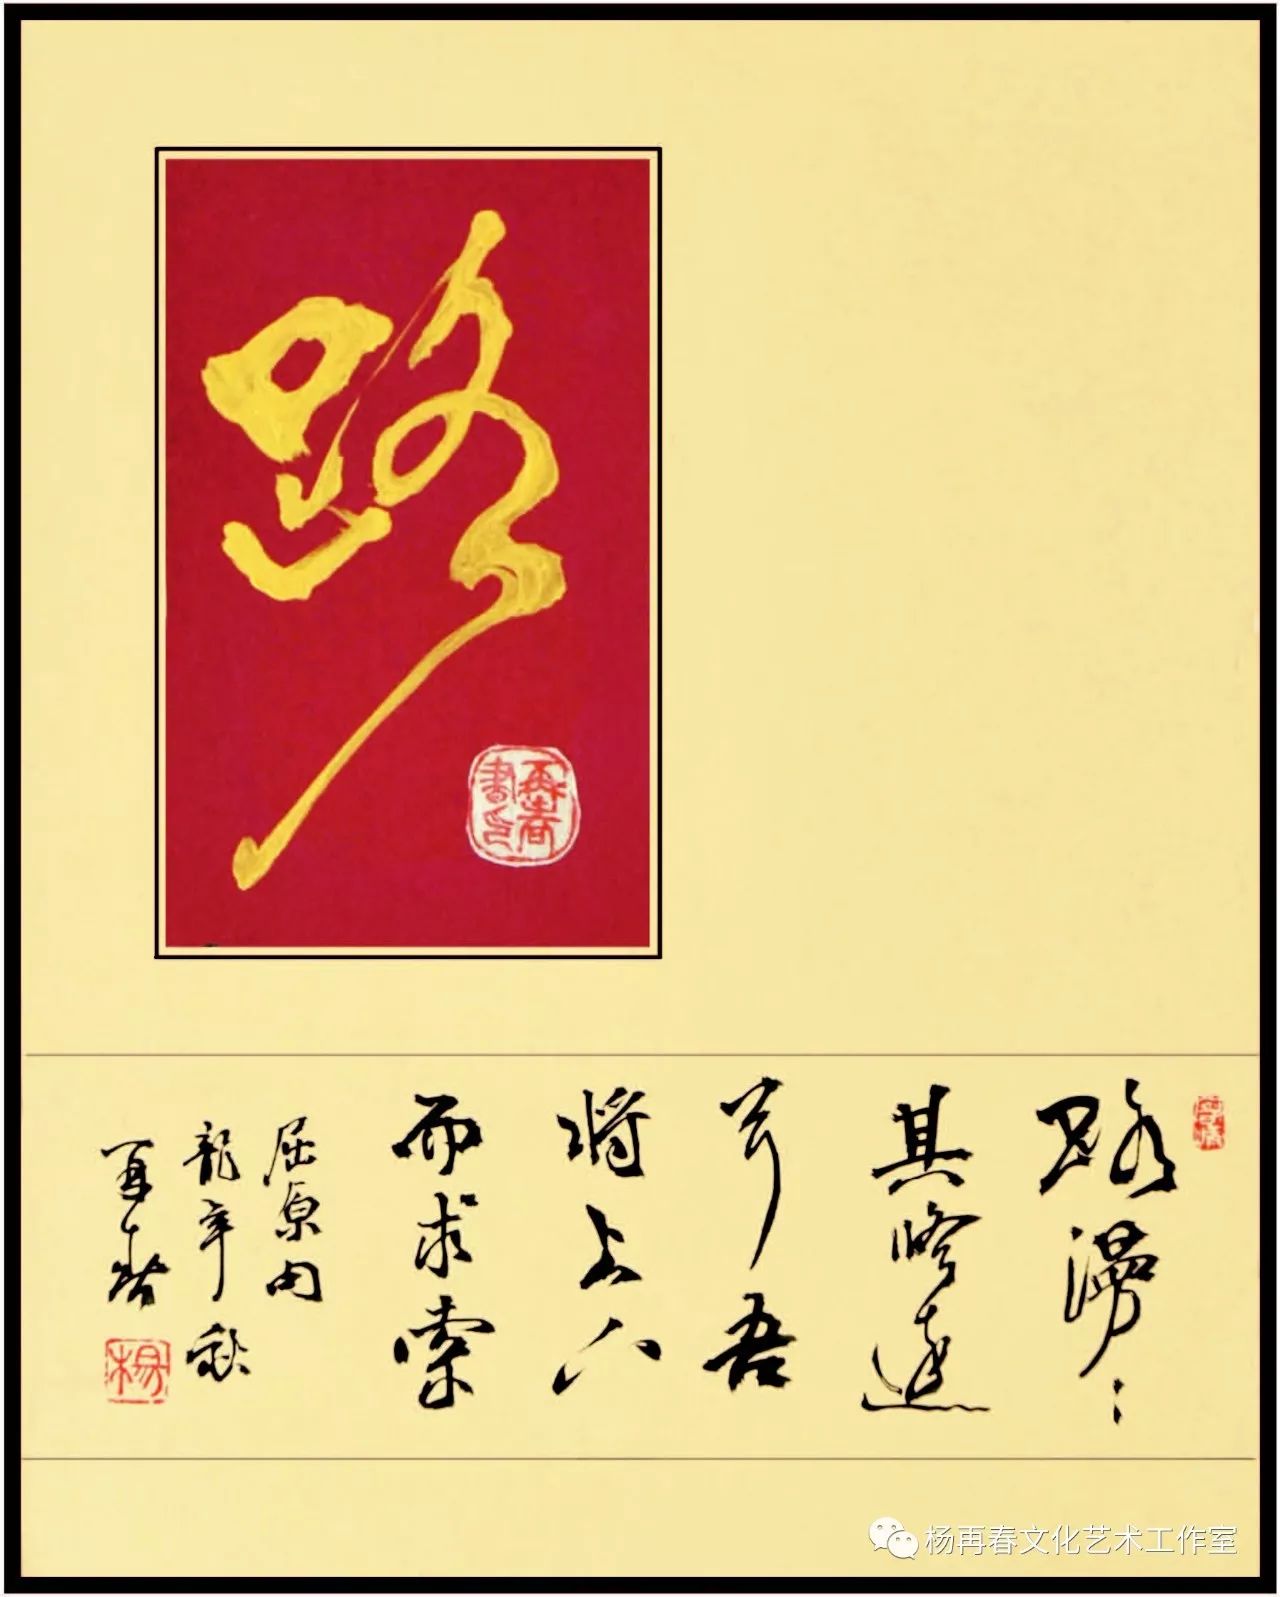 路
再春
書印
路漫〻
其修遠
兮吾
将上下
而求索
屈原句
龍年秋
再春
楊
杨再春文化艺术工作室